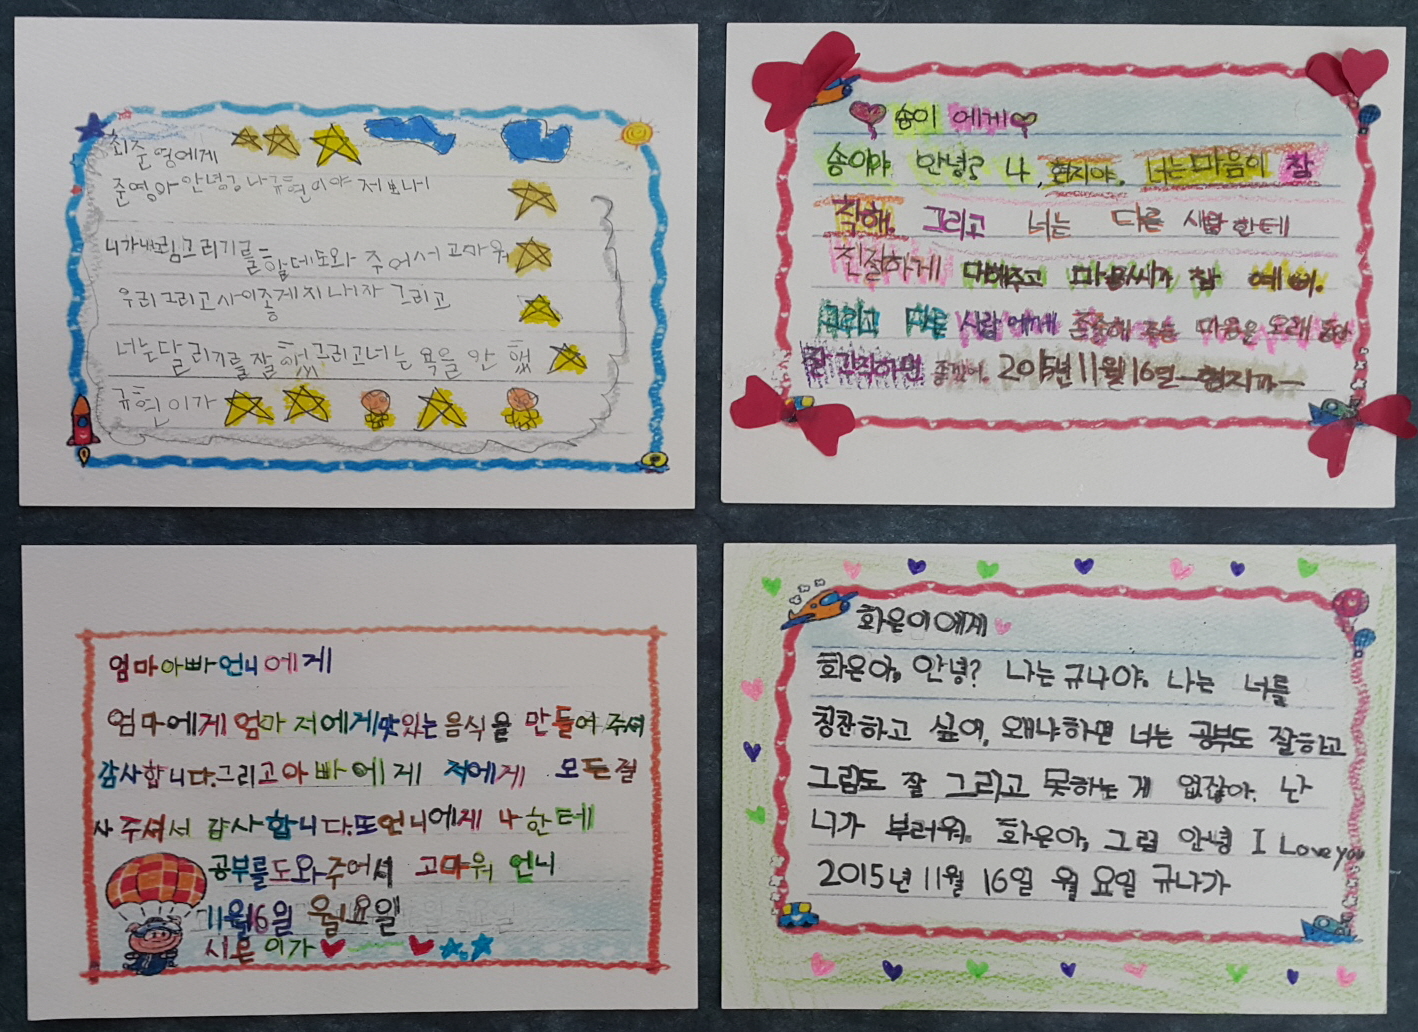 최준영에게
준영아 안녕? 나 규현이야 저보니
니가 내 그림그리기를 할데 도와 주어서 고마워
우리 그리고 사이좋게 지내자 그리고
너는 달리기를 잘했 그리고 너는 욕을 안 했
규현이가
송이 에게
송이야 안녕? 나, 현지야. 너는 마음이 참
착해. 그리고 너는 다른 사람한테
친절하게 대해주고 마음씨가 참 예뻐.
그리고 다른 사람에게 존중해 주는 마음은 오래 동안
잘 간직하면 좋겠어. 2015년 11월 16일 -현지가-
엄마아빠언니에게
엄마에게 엄마 저에게 맛있는 음식을 만들어 주셔
감사합니다.그리고 아빠에게 저에게 모든걸
사 주셔서 감사합니다.또언니에게 나한테
공부를도와주어서 고마워 언니
11월16일 월요일
시은이가
화은이에게
화은아, 안녕? 나는 규나야. 나는 너를
칭찬하고 싶어, 왜냐하면 너는 공부도 잘하고
그림도 잘 그리고 못하는 게 없잖아. 난
니가 부러워. 화은아, 그럼 안녕 I Love you
2015년 11월 16일 월요일 규나가